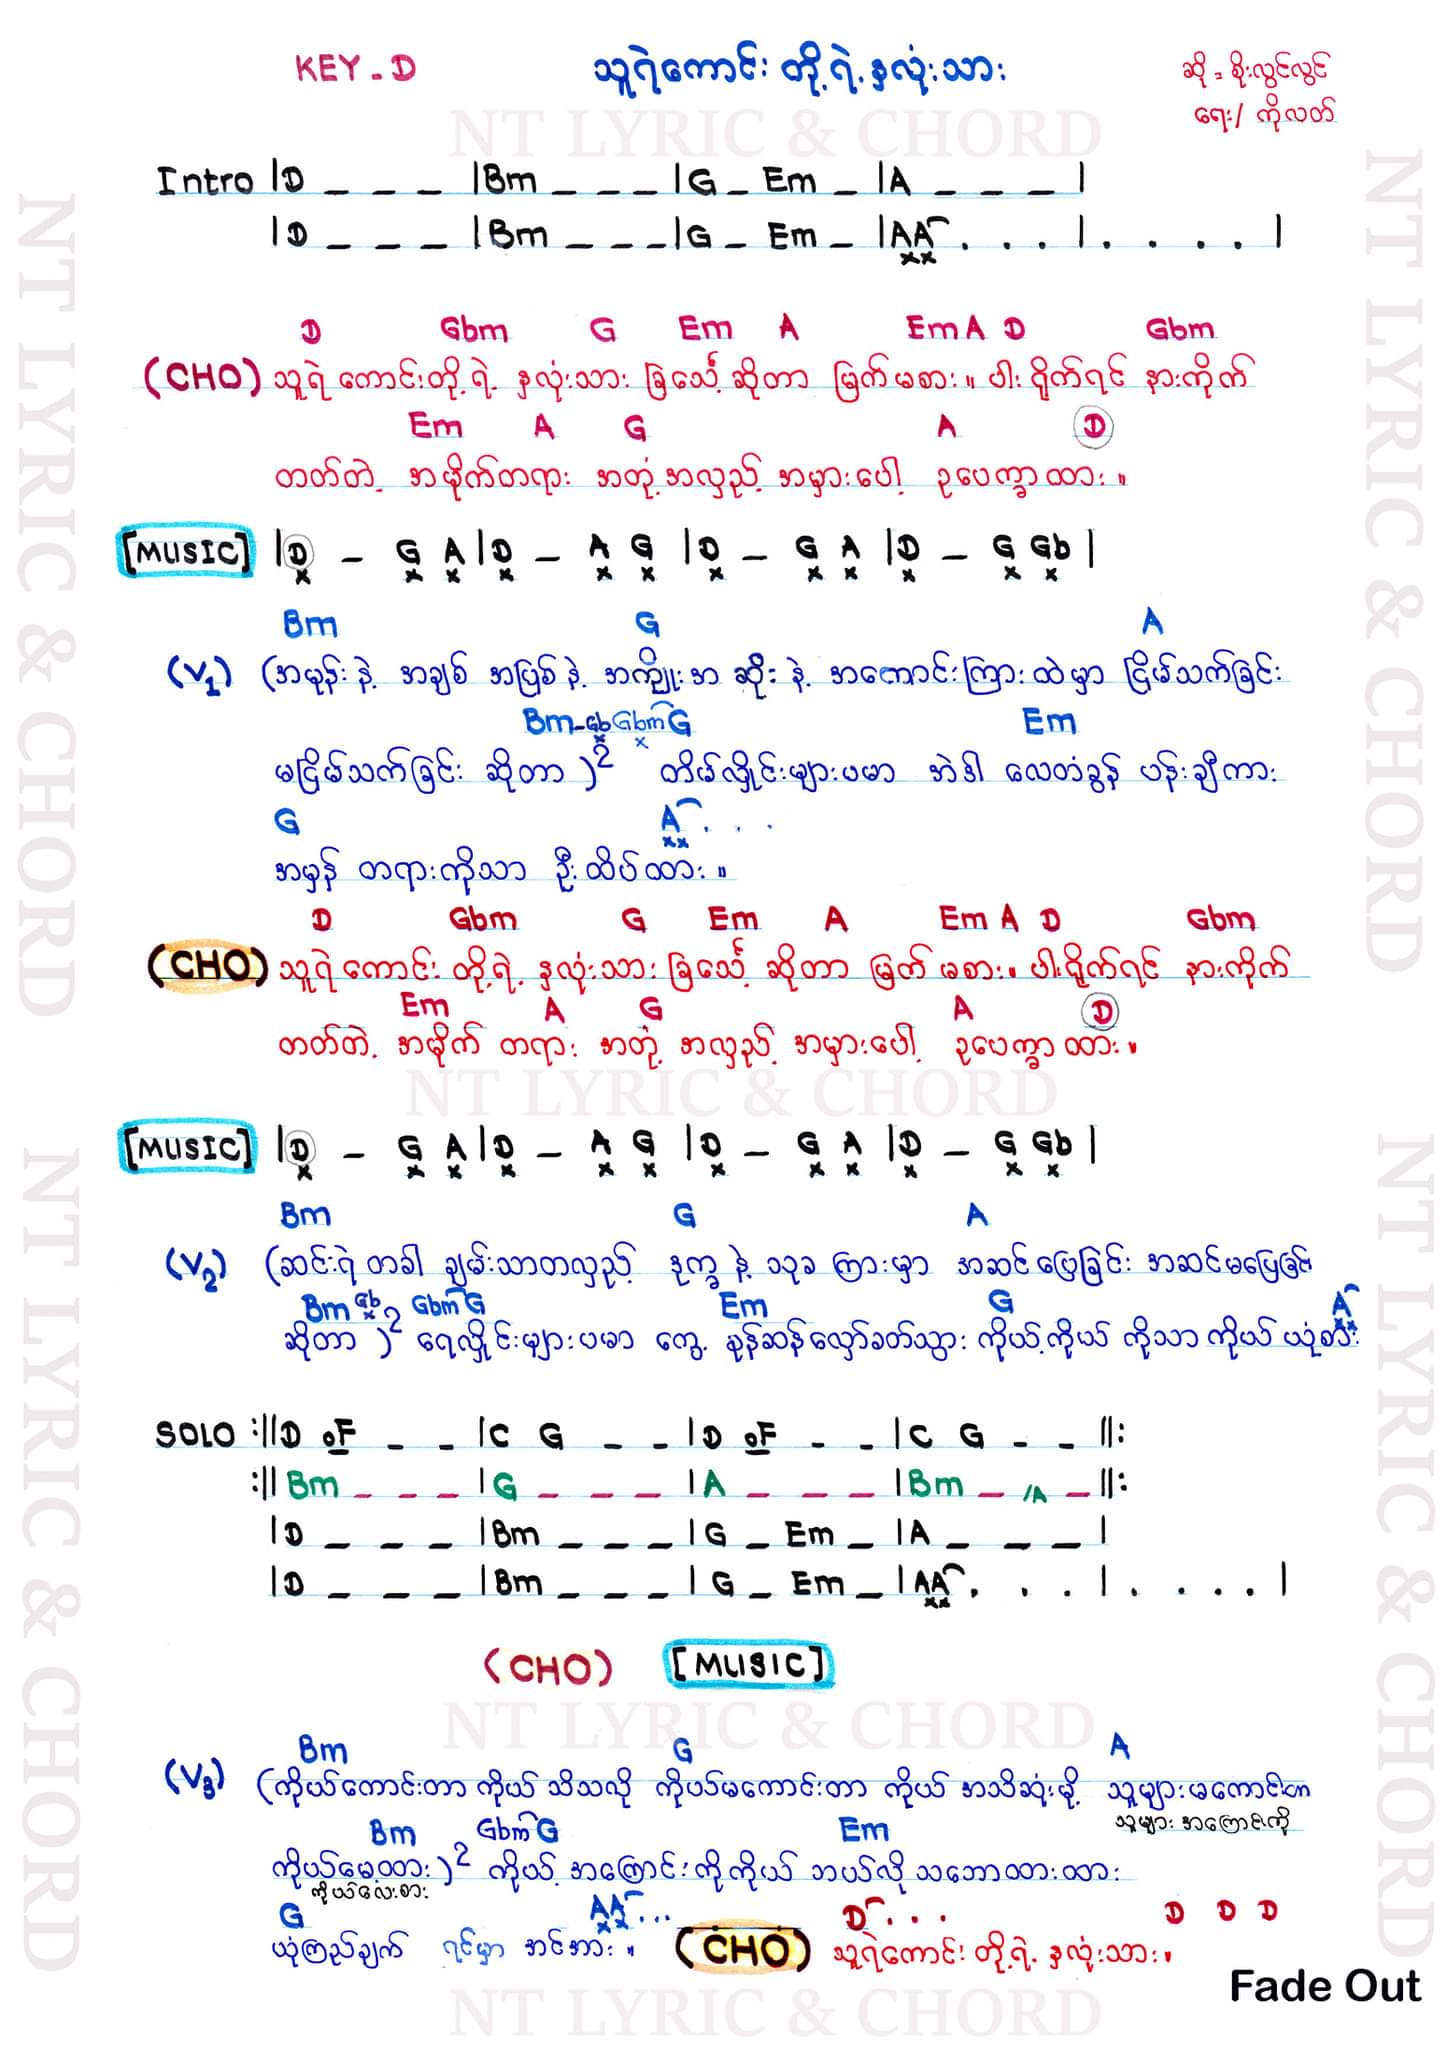 KEY - D
သူရဲကောင်း တို့ရဲ့ နှလုံးသား
ဆို - စိုးလွင်လွင်
ရေး/ ကိုလတ်
NT LYRIC & CHORD
Intro |D _ _ _ |Bm _ _ _ |G _ Em _ |A _ _ _ |
|D _ _ _ |Bm _ _ _ |G _ Em _ |AA . . . | . . . . |
D Gbm G Em A Em A D Gbm
(CHO) သူရဲ ကောင်းတို့ ရဲ့ နှလုံးသား ခြင်္သေ့ ဆိုတာ မြက်မစား။ ပါးရိုက်ရင် နားကိုက်
Em A G A D
တတ်တဲ့ အမိုက်တရား အတုံ့အလှည့် အမှားပေါ့ ဥပေက္ခာထား။
[MUSIC] |D _ G A |D _ A G |D _ G A |D _ G Gb |
x x x x x x x x x x x x
Bm G A
(V1) (အမုန်းနဲ့ အချစ် အပြစ်နဲ့ အကျိုးအဆိုးနဲ့ အကောင်းကြားထဲမှာ ငြိမ်သက်ခြင်း
Bm - Gb Gbm G Em
မငြိမ်သက်ခြင်း ဆိုတာ )2 တိမ်လှိုင်းများပမာ အဲဒါ လေတံခွန် ပန်းချီကား
G A . . .
အမှန် တရားကိုသာ ဦးထိပ်ထား။
D Gbm G Em A Em A D Gbm
(CHO) သူရဲကောင်း တို့ရဲ့ နှလုံးသား ခြင်္သေ့ ဆိုတာ မြက် မစား။ ပါးရိုက်ရင် နားကိုက်
Em A G A D
တတ်တဲ့ အမိုက် တရား အတုံ့ အလှည့် အမှားပေါ့ ဥပေက္ခာထား။
NT LYRIC & CHORD
[MUSIC] |D _ G A |D _ A G |D _ G A |D _ G Gb |
x x x x x x x x x x x x
Bm G A
(V2) (ဆင်းရဲတခါ ချမ်းသာတလှည့် ဒုက္ခနဲ့ သုခ ကြားမှာ အဆင်ပြေခြင်း အဆင်မပြေခြင်း
Bm Gb Gbm G Em G A
ဆိုတာ )2 ရေလှိုင်းများပမာ တွေ့ စုန်ဆန်လှော်ခတ်သွား ကိုယ့်ကိုယ် ကိုသာ ကိုယ် ယုံစား
SOLO :||D oF _ _ |C G _ _ |D oF _ _ |C G _ _ ||:
:||Bm _ _ _ |G _ _ _ |A _ _ _ |Bm _ /A _ ||:
|D _ _ _ |Bm _ _ _ |G _ Em _ |A _ _ _ |
|D _ _ _ |Bm _ _ _ |G _ Em _ |AA . . . | . . . . |
(CHO) [MUSIC]
NT LYRIC & CHORD
Bm G A
(V3) (ကိုယ်ကောင်းတာ ကိုယ် သိသလို ကိုယ်မကောင်းတာ ကိုယ် အသိဆုံးမို့ သူများမကောင်းတာ
သူများ အကြောင်းကို
Bm Gbm G Em
ကိုယ်မေ့ထား )2 ကိုယ့် အကြောင်းကိုကိုယ် ဘယ်လို သဘောထားထား
ကိုယ်လေးစား
G AA . . . D . . . D D D
ယုံကြည်ချက် ရင်မှာ အင်အား။ (CHO) သူရဲကောင်း တို့ရဲ့ နှလုံးသား။
Fade Out
NT LYRIC & CHORD
NT LYRIC & CHORD
NT LYRIC & CHORD
NT LYRIC & CHORD
NT LYRIC & CHORD